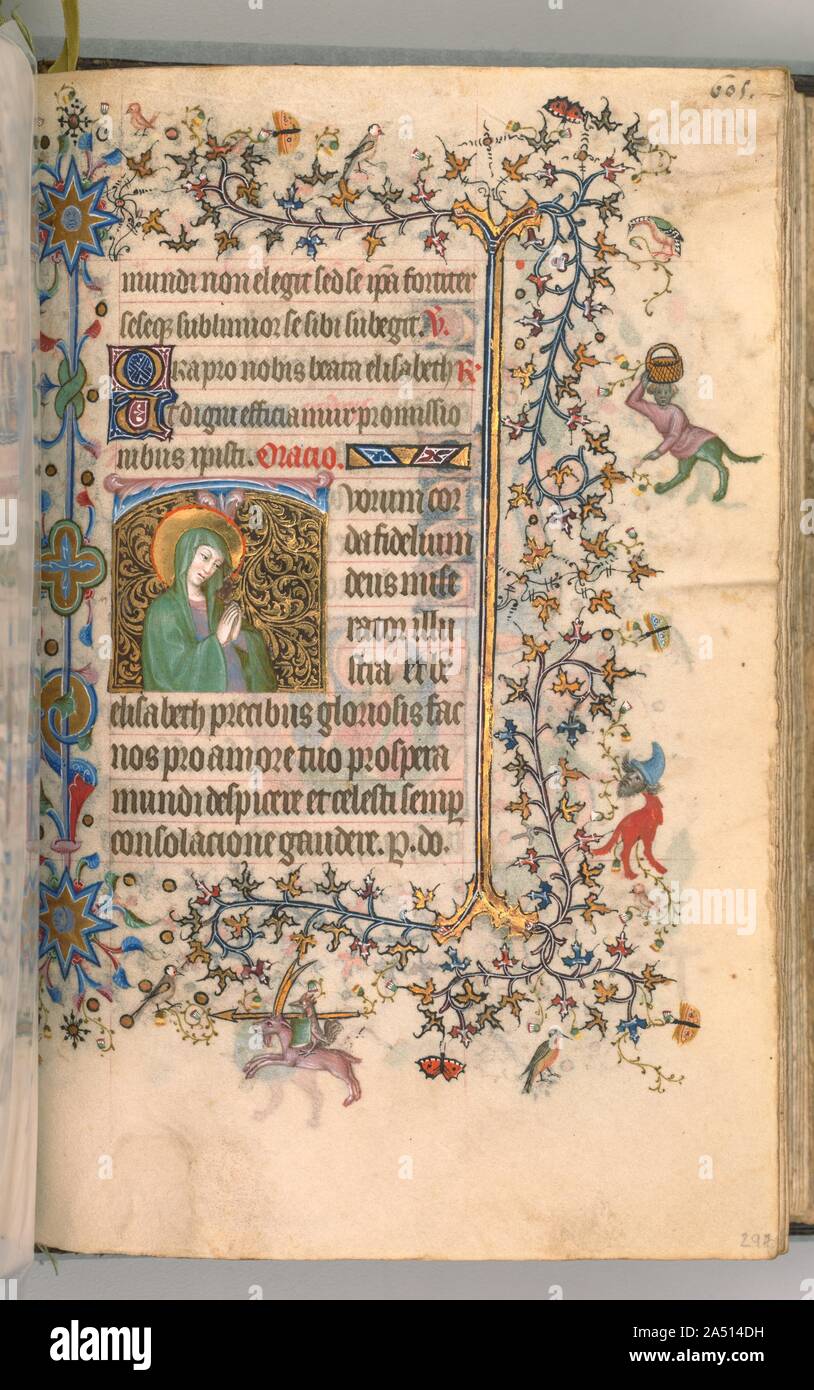 605.
mundi non elegit sed se ip̄a fortiter
seseqꝫ sublimior se sibi subegit. V̄.
Ora pro nobis beata elisabeth R̄.
Ut digni efficiamur promissio
nibus xpisti. Oracio.
Tuorum cor
da fidelium
deus mise
rator illu
stra et b̄e
elisabeth precibus gloriosis fac
nos pro amore tuo prospera
mundi despicere et celesti semp̱
consolacione gaudere. p. do.
298
a alamy stock photo
alamy
Image ID: 2A514DH
www.alamy.com